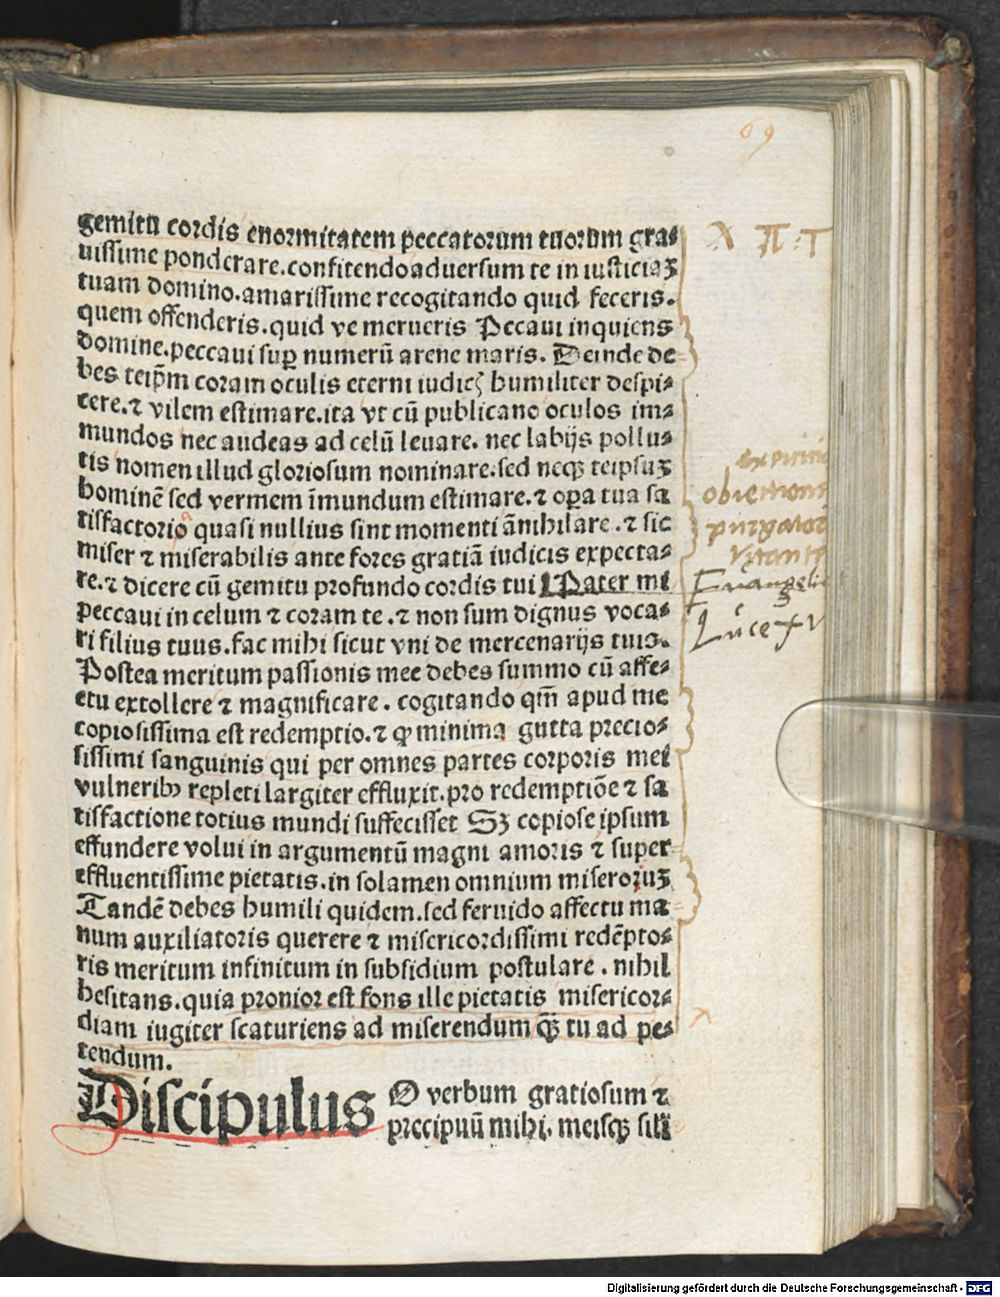 69
gemitū cordis enormitatem peccatorum tuorum gra⸗
uissime ponderare.confitendo aduersum te in iusticiaꝫ
tuam domino.amarissime recogitando quid feceris.
quem offenderis.quid ve merueris Peccaui inquiens
domine.peccaui suꝑ numerū arene maris. Deinde de⸗
bes teip̄m coram oculis eterni iudicꝭ humiliter despi⸗
cere.⁊ vilem estimare.ita vt cū publicano oculos im⸗
mundos nec audeas ad celū leuare. nec labijs pollu⸗
tis nomen illud gloriosum nominare.sed neqꝫ teipsuꝫ
hominē sed vermem īmundum estimare.⁊ oꝑa tua sa
tisfactoria quasi nullius sint momenti ānihilare.⁊ sic
miser ⁊ miserabilis ante fores gratiā iudicis expecta⸗
re.⁊ dicere cū gemitu profundo cordis tui Pater mi
peccaui in celum ⁊ coram te.⁊ non sum dignus voca⸗
ri filius tuus.fac mihi sicut vni de mercenarijs tuis.
Postea meritum passionis mee debes summo cū affe⸗
ctu extollere ⁊ magnificare. cogitando qm̄ apud me
copiosissima est redemptio.⁊ ꝙ minima gutta precio⸗
sissimi sanguinis qui per omnes partes corporis mei
vulneribꝰ repleti largiter effluxit.pro redemptiōe ⁊ sa
tisfactione totius mundi suffecisset Sꝫ copiose ipsum
effundere volui in argumentū magni amoris ⁊ super⸗
effluentissime pietatis.in solamen omnium miseroruꝫ
Tandē debes humili quidem.sed feruido affectu ma
num auxiliatoris querere ⁊ misericordissimi redēpto⸗
ris meritum infinitum in subsidium postulare. nihil
hesitans.quia pronior est fons ille pietatis misericor⸗
diam iugiter scaturiens ad miserendum ꝙ̄ tu ad pe⸗
tendum.
Discipulus O verbum gratiosum ⁊
precipuū mihi. meisqꝫ sili
Euangeli
Luce xv
Digitalisierung gefördert durch die Deutsche Forschungsgemeinschaft - DFG